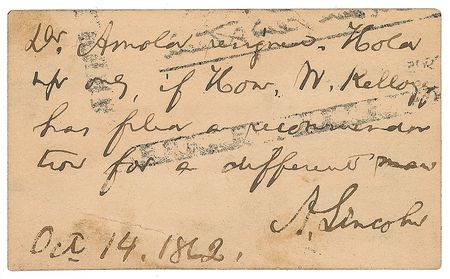 Dr. Arnold resigned. Hold
up ong, if Hon. W. Kellogg
has filed a recommenda
tion for a different man
A. Lincoln
Oct 14. 1862.